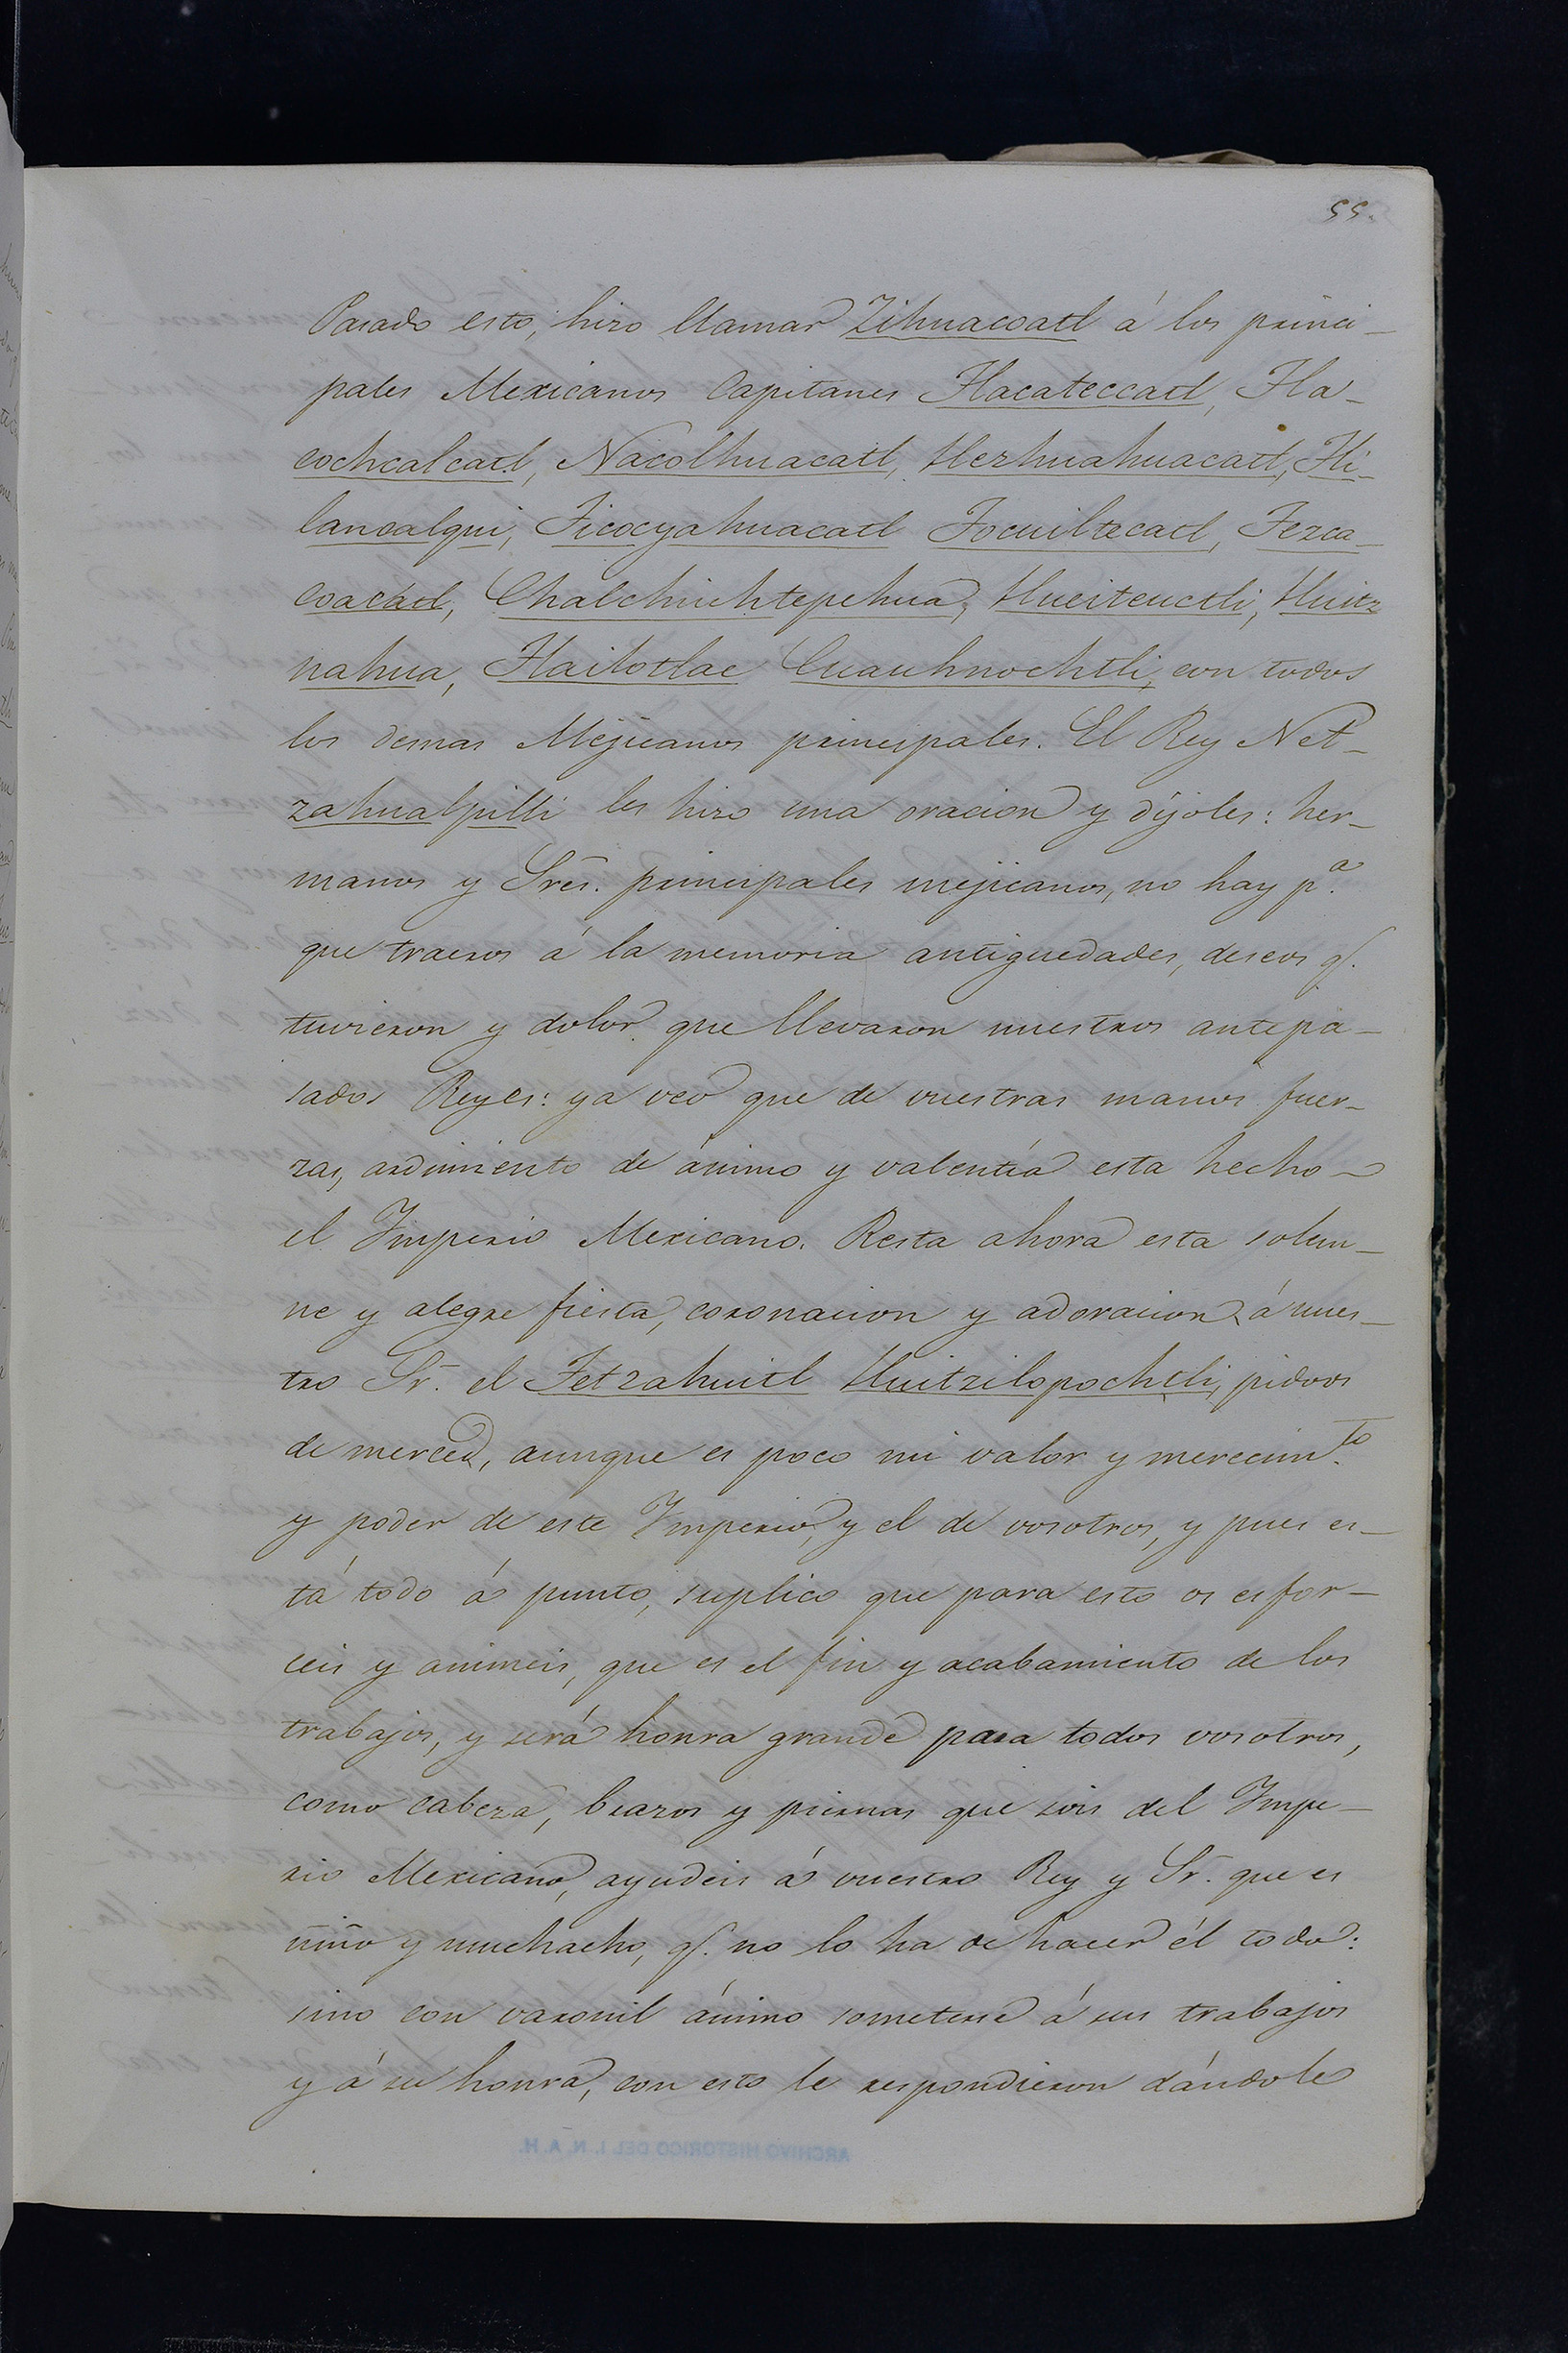 55.
Pasado esto, hizo llamar Zihuacoatl á los princi-
pales Mexicanos Capitanes Tlacateccatl, Tla-
cochcalcatl, Nacolhuacatl, Hezhuahuacatl, Tli-
lancalqui, Ticocyahuacatl Tocuiltecatl, Tezca-
coacatl, Chalchiuhtepehua, Hueiteuctli, Huitz
nahua, Tlailotlac Cuauhnochtli, con todos
los demas Mejicanos principales. El Rey Net-
zahualpilli les hizo una oracion y díjoles: her-
manos y Sres. principales mejicanos, no hay pª.
que traeros á la memoria antiguedades, deseos q.
tuvieron y dolor que llevaron nuestros antepa-
sados Reyes: ya veo que de vuestras manos fuer-
zas, ardimiento de ánimo y valentía esta hecho
el Imperio Mexicano. Resta ahora esta solem-
ne y alegre fiesta, coronacion y adoracion á nues-
tro Sr. el Tetzahuitl Huitzilopochtli, pidoos
de merced, aunque es poco mi valor y merecimto.
y poder de este Imperio, y el de vosotros, y pues es-
tá todo á punto, suplico que para esto os esfor-
ceis y animeis, que es el fin y acabamiento de los
trabajos, y será honra grande para todos vosotros,
como cabeza, brazos y piernas que sois del Impe-
rio Mexicano, ayudeis á vuestro Rey y Sr. que es
niño y muchacho, q. no lo ha de hacer él todo:
sino con varonil ánimo someterse á sus trabajos
y á su honra, con esto le respondieron dándole
ARCHIVO HISTORICO DEL I. N. A. H.